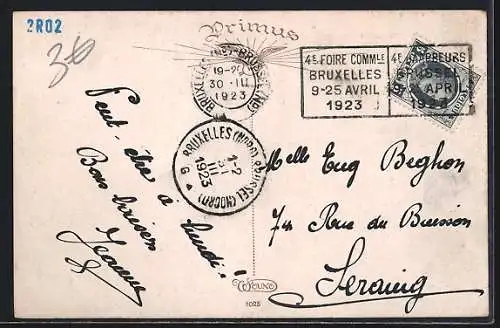 2R02
Primus
BRUXELLES BRUSSEL
19-20
30·III
1923
4E FOIRE COMMLE
BRUXELLES
9-25 AVRIL
1923
BRUSSEL
APRI
1923
BRUXELLES (NORD) BRUSSEL (NOORD)
1-2
31
III
1923
G
Peut-être à lundi!
Bons baisers
Jeanne
Melle Eug Beghon
74 Rue du Buisson
Seraing
1025